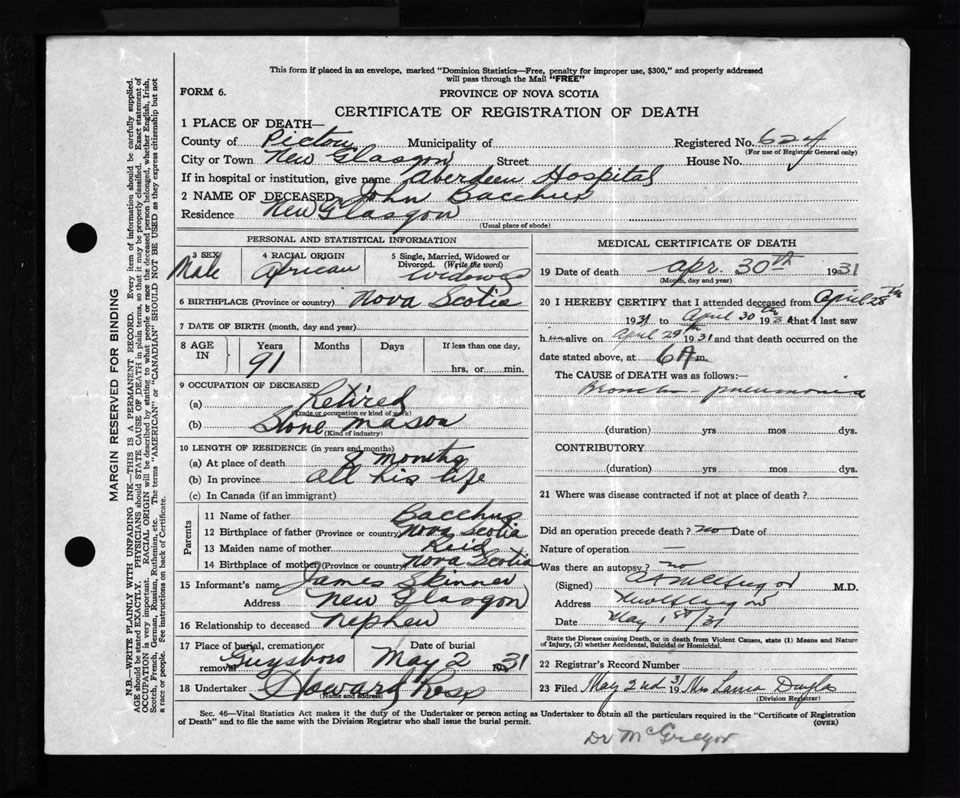 This form if placed in an envelope, marked "Dominion Statistics—Free, penalty for improper use, $300," and properly addressed
will pass through the Mail "FREE"
FORM 6.
PROVINCE OF NOVA SCOTIA
CERTIFICATE OF REGISTRATION OF DEATH
1 PLACE OF DEATH—
County of Pictou Municipality of Registered No. 624
(For use of Registrar General only)
City or Town New Glasgow Street House No.
If in hospital or institution, give name Aberdeen Hospital
2 NAME OF DECEASED John Bacchus
Residence New Glasgow
(Usual place of abode)
PERSONAL AND STATISTICAL INFORMATION
3 SEX 4 RACIAL ORIGIN 5 Single, Married, Widowed or
Divorced. (Write the word)
Male African widowed
6 BIRTHPLACE (Province or country) Nova Scotia
7 DATE OF BIRTH (month, day and year)
8 AGE IN Years Months Days If less than one day,
91 hrs. or min.
9 OCCUPATION OF DECEASED
(a) Retired
(Trade or occupation or kind of work)
(b) Stone mason
(Kind of industry)
10 LENGTH OF RESIDENCE (in years and months)
(a) At place of death 8 months
(b) In province all his life
(c) In Canada (if an immigrant)
Parents
11 Name of father Bacchus
12 Birthplace of father (Province or country) Nova Scotia
13 Maiden name of mother Reid
14 Birthplace of mother (Province or country) Nova Scotia
15 Informant's name James Skinner
Address New Glasgow
16 Relationship to deceased Nephew
17 Place of burial, cremation or removal Date of burial
Guysboro May 2 1931
18 Undertaker Howard Ross
(Name and address)
MEDICAL CERTIFICATE OF DEATH
19 Date of death Apr. 30th 1931
(Month, day and year)
20 I HEREBY CERTIFY that I attended deceased from April 28th
1931 to April 30th 1931 that I last saw
him alive on April 29th 1931 and that death occurred on the
date stated above, at 6 A m.
The CAUSE of DEATH was as follows:—
Broncho pneumonia
(duration) yrs mos dys.
CONTRIBUTORY
(duration) yrs mos dys.
21 Where was disease contracted if not at place of death?
Did an operation precede death? no Date of
Nature of operation —
Was there an autopsy? no
(Signed) M.D.
Address
Date May 1st/31
State the Disease causing Death, or in death from Violent Causes, state (1) Means and Nature
of Injury, (2) whether Accidental, Suicidal or Homicidal.
22 Registrar's Record Number
23 Filed May 2nd 1931 Mrs
(Division Registrar)
Sec. 46—Vital Statistics Act makes it the duty of the Undertaker or person acting as Undertaker to obtain all the particulars required in the "Certificate of Registration
of Death" and to file the same with the Division Registrar who shall issue the burial permit. (OVER)
Dr McGregor
MARGIN RESERVED FOR BINDING
N.B.—WRITE PLAINLY WITH UNFADING INK—THIS IS A PERMANENT RECORD. Every item of information should be carefully supplied.
AGE should be stated EXACTLY. PHYSICIANS should STATE CAUSE OF DEATH in plain terms, so that it may be properly classified. Exact statement of
OCCUPATION is very important. RACIAL ORIGIN will be described by stating to what people or race the deceased person belonged, whether English, Irish,
Scotch, French, German, Russian, Ruthenian, etc. The terms "AMERICAN" or "CANADIAN" SHOULD NOT BE USED as they express citizenship but not
a race or people. See instructions on back of Certificate.